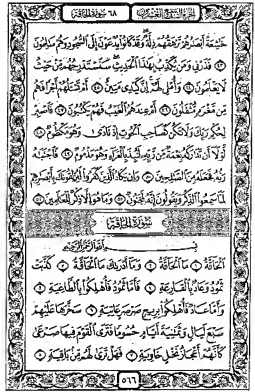 الجزء التاسع والعشرون ٦٨ سورة
خَٰشِعَةً أَبْصَٰرُهُمْ تَرْهَقُهُمْ ذِلَّةٌ وَقَدْ كَانُوا۟ يُدْعَوْنَ إِلَى ٱلسُّجُودِ وَهُمْ سَٰلِمُونَ
٤٣ فَذَرْنِى وَمَن يُكَذِّبُ بِهَٰذَا ٱلْحَدِيثِ سَنَسْتَدْرِجُهُم مِّنْ حَيْثُ
لَا يَعْلَمُونَ ٤٤ وَأُمْلِى لَهُمْ إِنَّ كَيْدِى مَتِينٌ ٤٥ أَمْ تَسْـَٔلُهُمْ أَجْرًا فَهُم
مِّن مَّغْرَمٍ مُّثْقَلُونَ ٤٦ أَمْ عِندَهُمُ ٱلْغَيْبُ فَهُمْ يَكْتُبُونَ ٤٧ فَٱصْبِرْ
لِحُكْمِ رَبِّكَ وَلَا تَكُن كَصَاحِبِ ٱلْحُوتِ إِذْ نَادَىٰ وَهُوَ مَكْظُومٌ ٤٨
لَّوْلَآ أَن تَدَٰرَكَهُۥ نِعْمَةٌ مِّن رَّبِّهِۦ لَنُبِذَ بِٱلْعَرَآءِ وَهُوَ مَذْمُومٌ ٤٩ فَٱجْتَبَٰهُ
رَبُّهُۥ فَجَعَلَهُۥ مِنَ ٱلصَّٰلِحِينَ ٥٠ وَإِن يَكَادُ ٱلَّذِينَ كَفَرُوا۟ لَيُزْلِقُونَكَ بِأَبْصَٰرِهِمْ
لَمَّا سَمِعُوا۟ ٱلذِّكْرَ وَيَقُولُونَ إِنَّهُۥ لَمَجْنُونٌ ٥١ وَمَا هُوَ إِلَّا ذِكْرٌ لِّلْعَٰلَمِينَ ٥٢
سُورَةُ الْحَاقَّةِ
بِسْمِ ٱللَّهِ ٱلرَّحْمَٰنِ ٱلرَّحِيمِ
ٱلْحَآقَّةُ ١ مَا ٱلْحَآقَّةُ ٢ وَمَآ أَدْرَىٰكَ مَا ٱلْحَآقَّةُ ٣ كَذَّبَتْ
ثَمُودُ وَعَادٌۢ بِٱلْقَارِعَةِ ٤ فَأَمَّا ثَمُودُ فَأُهْلِكُوا۟ بِٱلطَّاغِيَةِ ٥
وَأَمَّا عَادٌ فَأُهْلِكُوا۟ بِرِيحٍ صَرْصَرٍ عَاتِيَةٍ ٦ سَخَّرَهَا عَلَيْهِمْ
سَبْعَ لَيَالٍ وَثَمَٰنِيَةَ أَيَّامٍ حُسُومًا فَتَرَى ٱلْقَوْمَ فِيهَا صَرْعَىٰ
كَأَنَّهُمْ أَعْجَازُ نَخْلٍ خَاوِيَةٍ ٧ فَهَلْ تَرَىٰ لَهُم مِّنۢ بَاقِيَةٍ ٨
٥٦٦